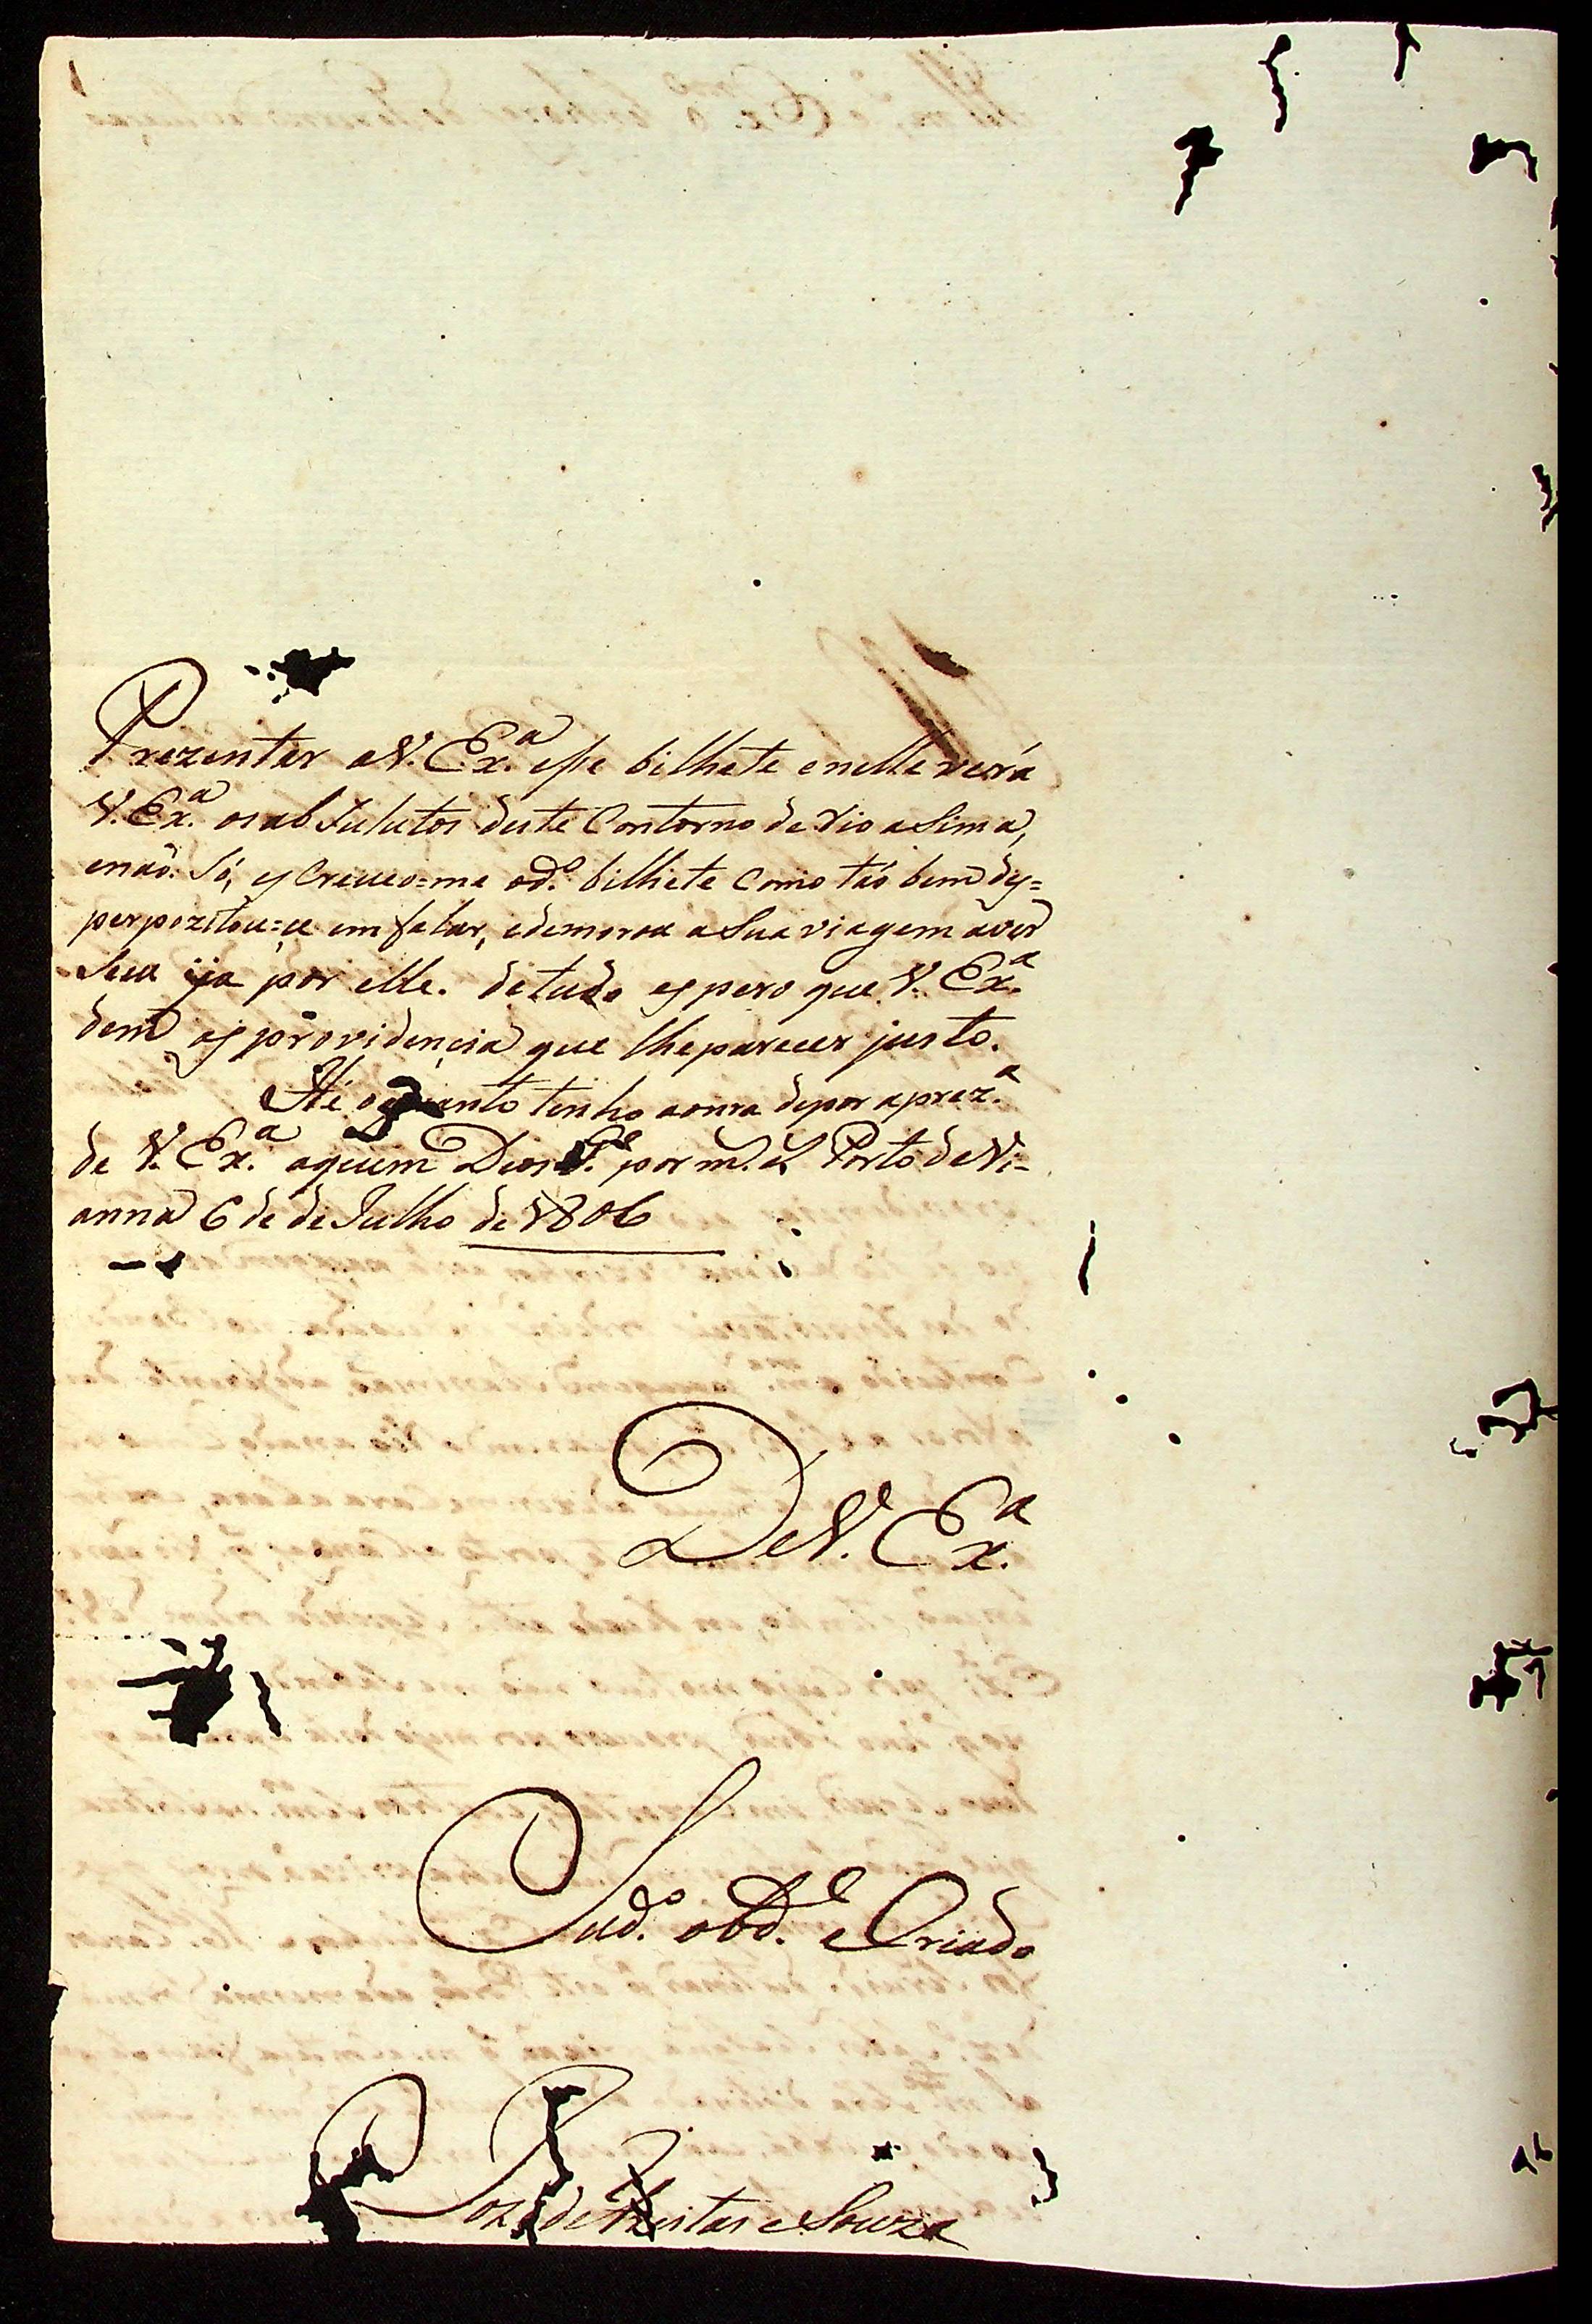 Prezentar aV. Ex.ª esse bilhete enelle verá
V. Ex.ª os absulutos deste Contorno de Rio aSima,
enaõ. Só, escreueo=me od.º bilhete Como taõ bem des=
perpozitou=çe em falar, edemorou aSua viagem aver
Seu ija por elle. detudo espero que V. Ex.ª
dem as providençia que lheparecer justo.
Hé oquanto tenho aonra depor aprez.ª
de V. Ex.ª aquem Deos G.e por m.s Porto deVi=
anna 6 de de Julho de 1806
DeV. Ex.ª
Sud.º obd.e eCriado
Jozé de Freitas eSouza